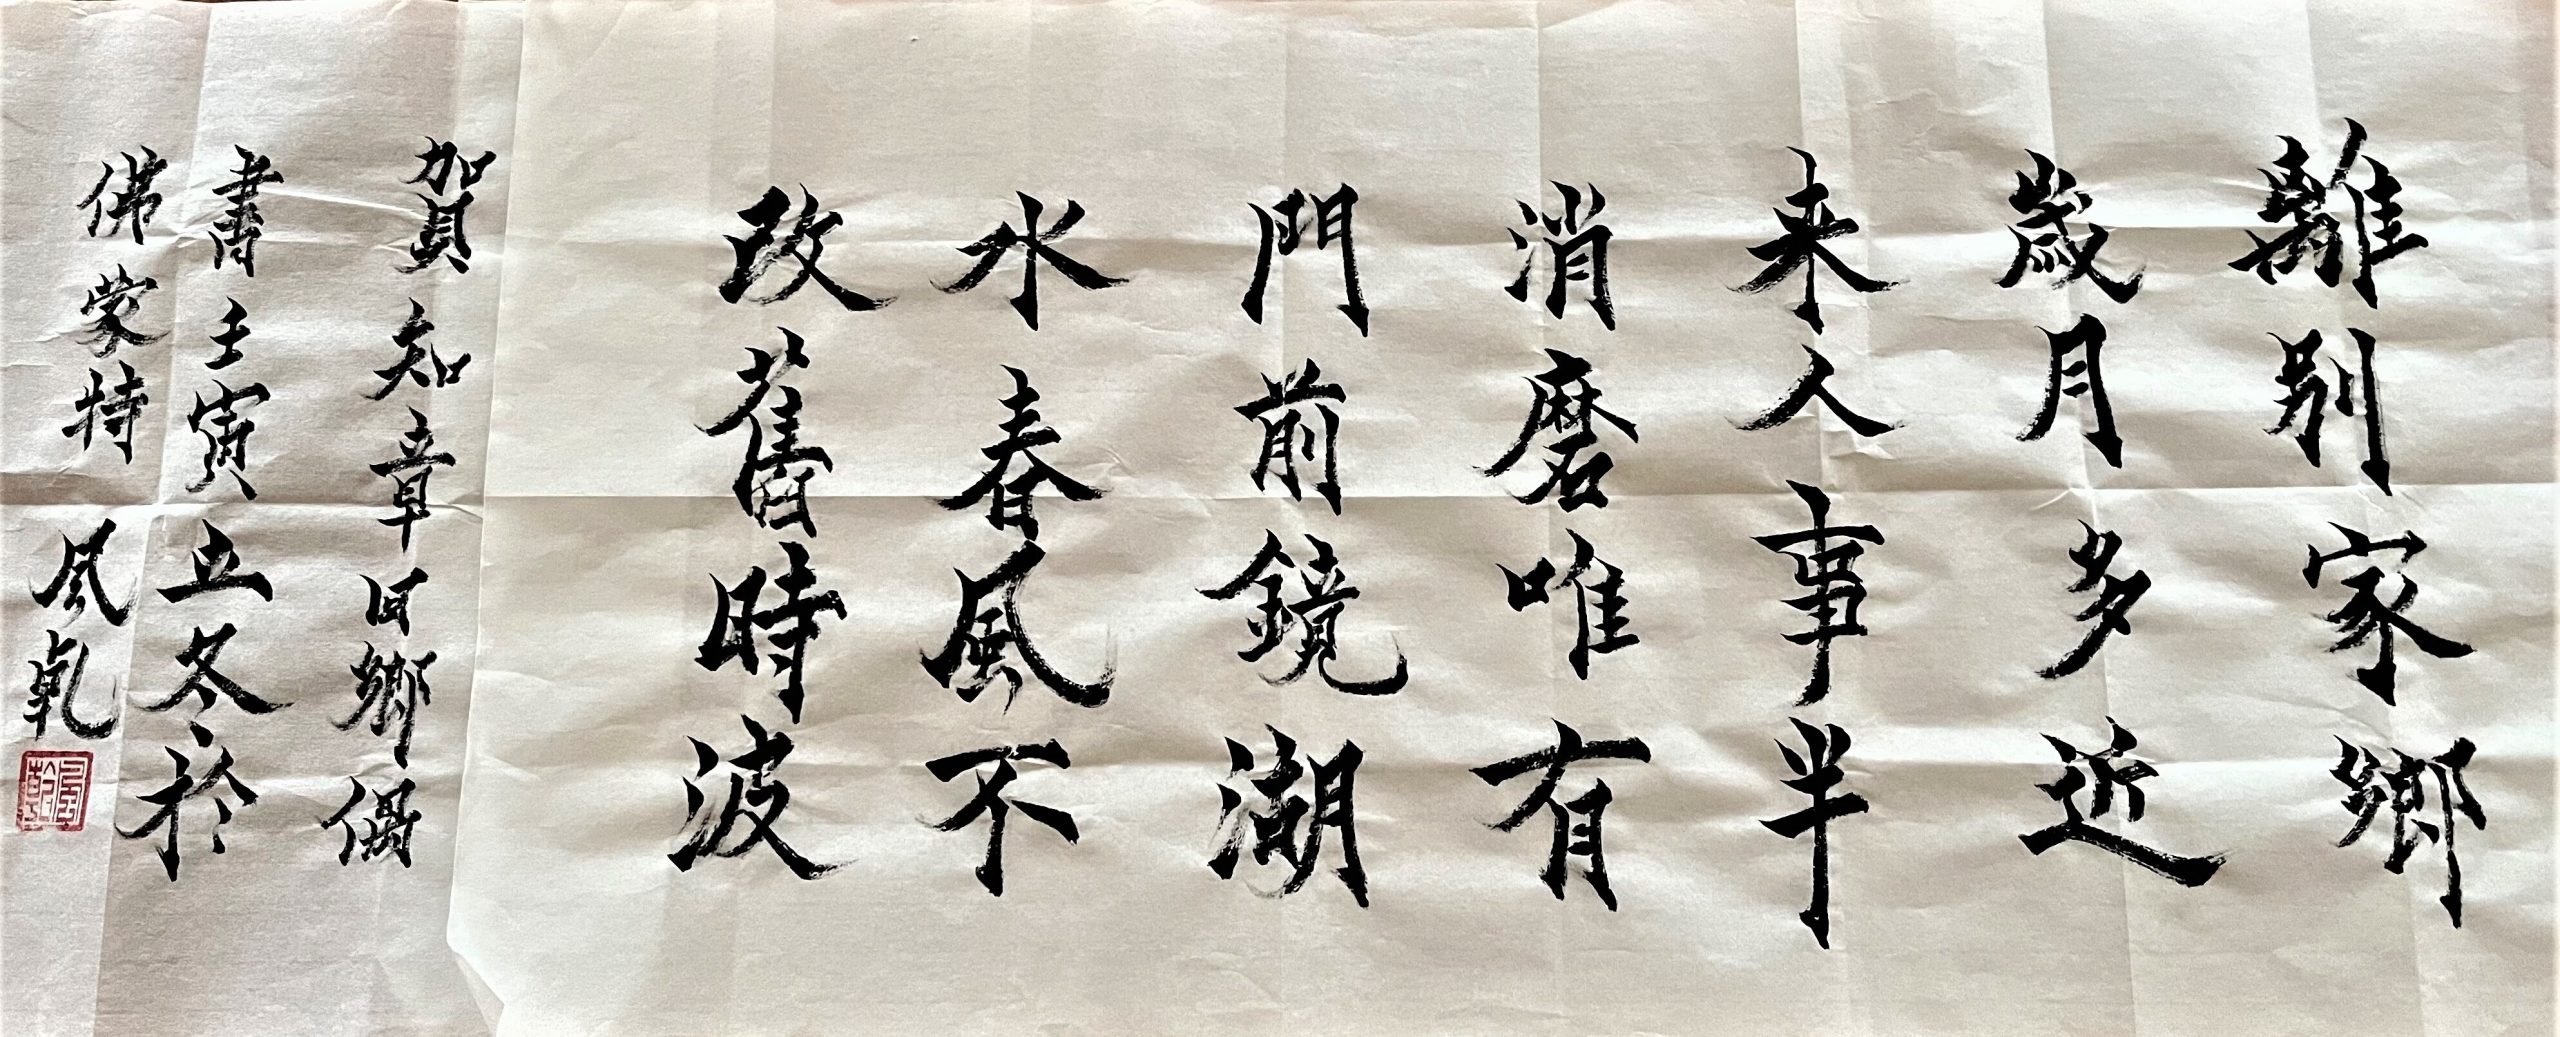 離別家鄉
歲月多近
来人事半
消磨唯有
門前鏡湖
水春風不
改舊時波
賀知章回鄉偶
書壬寅立冬於
佛蒙特 风氧